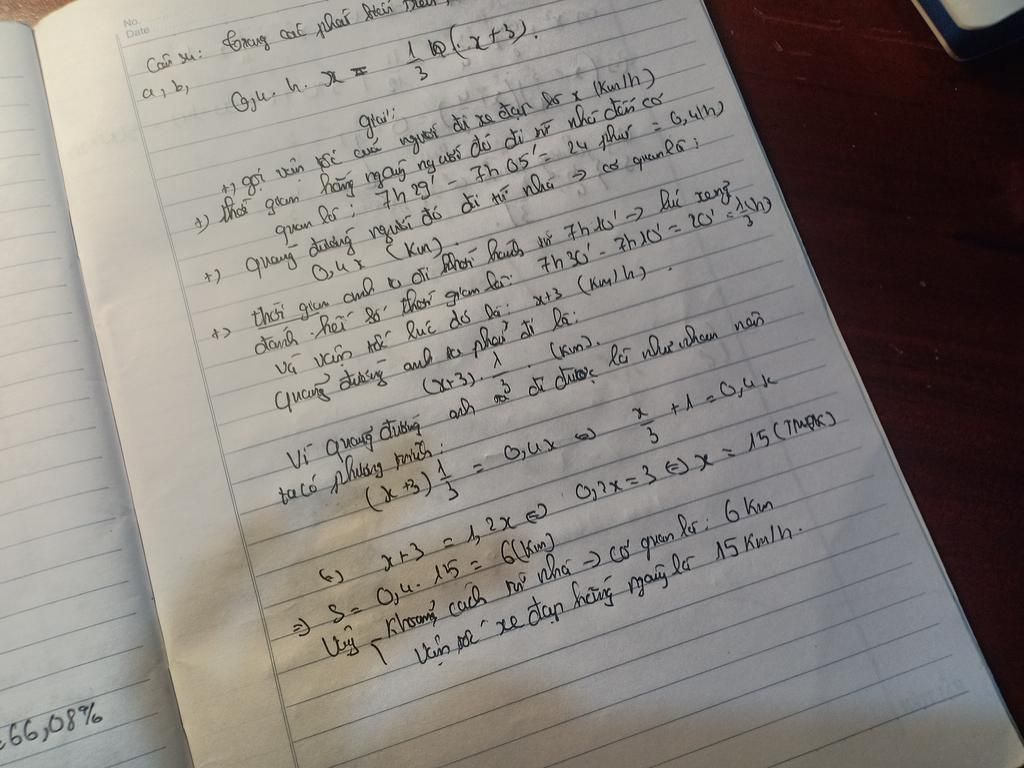 No.
Date
Câu su: trong các phát
a, b,
0,4. h. x = 1/3 (x+3).
giải:
+) gọi vận tốc của người đi xe đạp là x (km/h)
+) thời gian hằng ngày người đó đi từ nhà đến cơ
quan là: 7h29' - 7h05' = 24 phút = 0,4(h)
+) quãng đường người đó đi từ nhà => cơ quan là:
0,4x (km).
+) thời gian anh ta đi khởi hành từ 7h10' -> lúc
đánh hết là thời gian là: 7h30' - 7h10' = 20' = 1/3(h)
Và vận tốc lúc đó là: x+3 (km/h)
Quãng đường anh ta phải đi là:
(x+3). 1/3 (km).
Vì quãng đường anh đi được là như nhau nên
ta có phương trình:
(x+3) 1/3 = 0,4x <=> x/3 + 1 = 0,4x
<=> x+3 = 1,2x <=> 0,2x = 3 <=> x = 15 (TMĐK)
=> S = 0,4. 15 = 6(km)
Vậy { Khoảng cách từ nhà -> cơ quan là: 6 km
vận tốc xe đạp hằng ngày là 15 km/h.
66,08%